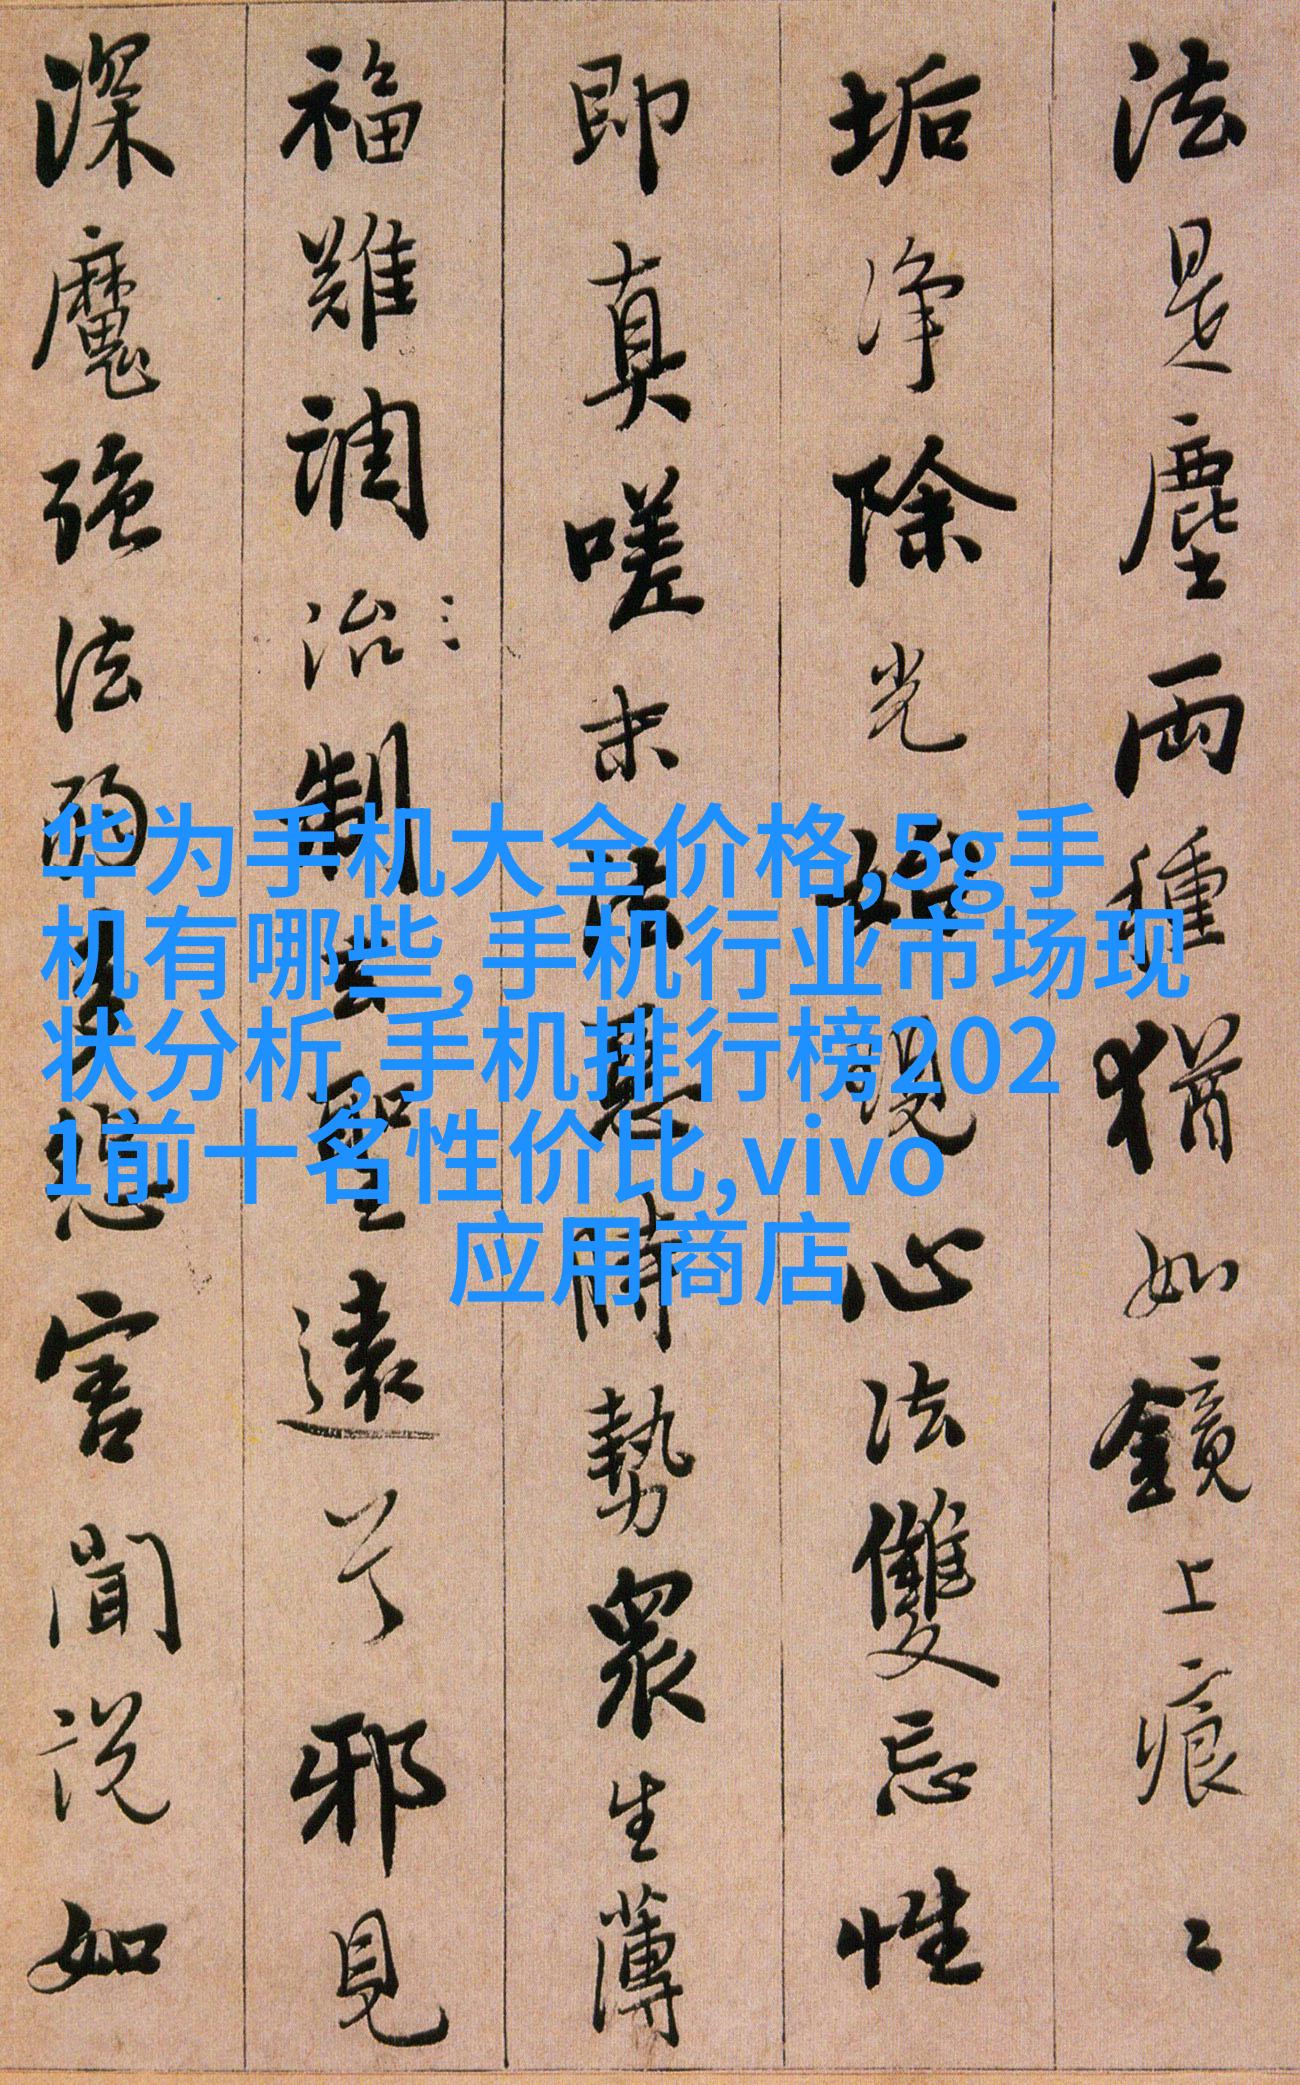 法是塵兩種猶如鏡上痕〻
垢淨除光始現心法雙忘性
即真嗟末法惡時勢衆生薄
福難調治制去聖遠兮邪見
深魔強法弱多怨害聞說如
华为手机大全价格,5g手
机有哪些,手机行业市场现
状分析,手机排行榜202
1前十名性价比,vivo
应用商店